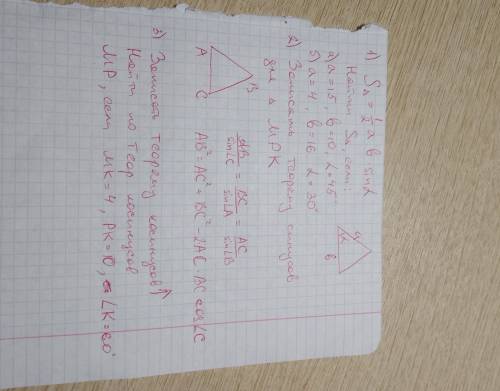 1) S△ = 1/2 a b sin α
Найти S△, если:
а) a = 15, b = 10, α = 45
б) a = 4, b = 16, α = 30°
a
α
b
2) Записать теорему синусов
для △ MPK
A
B
C
AB/sin∠C = BC/sin∠A = AC/sin∠B
AB² = AC² + BC² - 2AC · BC cos∠C
3) Записать теорему косинусов ↑
Найти по теор косинусов
MP, если MK = 4, PK = 10, ∠K = 60°